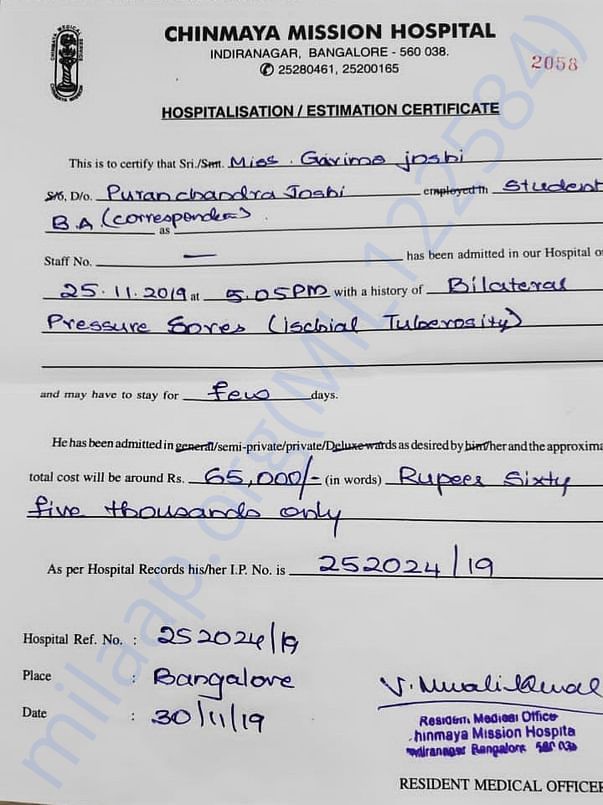 CHINMAYA MISSION HOSPITAL
INDIRANAGAR, BANGALORE - 560 038.
✆ 25280461, 25200165
2058
CHINMAYA MEDICAL SERVICE
CHINMAYA MISSION
HOSPITALISATION / ESTIMATION CERTIFICATE
This is to certify that Sri./Smt. Miss. Garima joshi
S/o, D/o. Puran chandra Joshi employed in Student
B.A (correspondex) as
Staff No. — has been admitted in our Hospital o
25.11.2019 at 5.05PM with a history of Bilateral
Pressure Sores (ischial Tuberosity)
and may have to stay for few days.
He has been admitted in general/semi-private/private/Deluxe wards as desired by him/her and the approxima
total cost will be around Rs. 65,000/- (in words) Rupees Sixty
five thousands only
As per Hospital Records his/her I.P. No. is 252024/19
Hospital Ref. No. : 252024/19
Place : Bangalore
Date : 30/11/19
Resident Medical Office
hinmaya Mission Hospita
ndiranagar Bangalore 560 038
RESIDENT MEDICAL OFFICER
milaap.org(MIL122584)